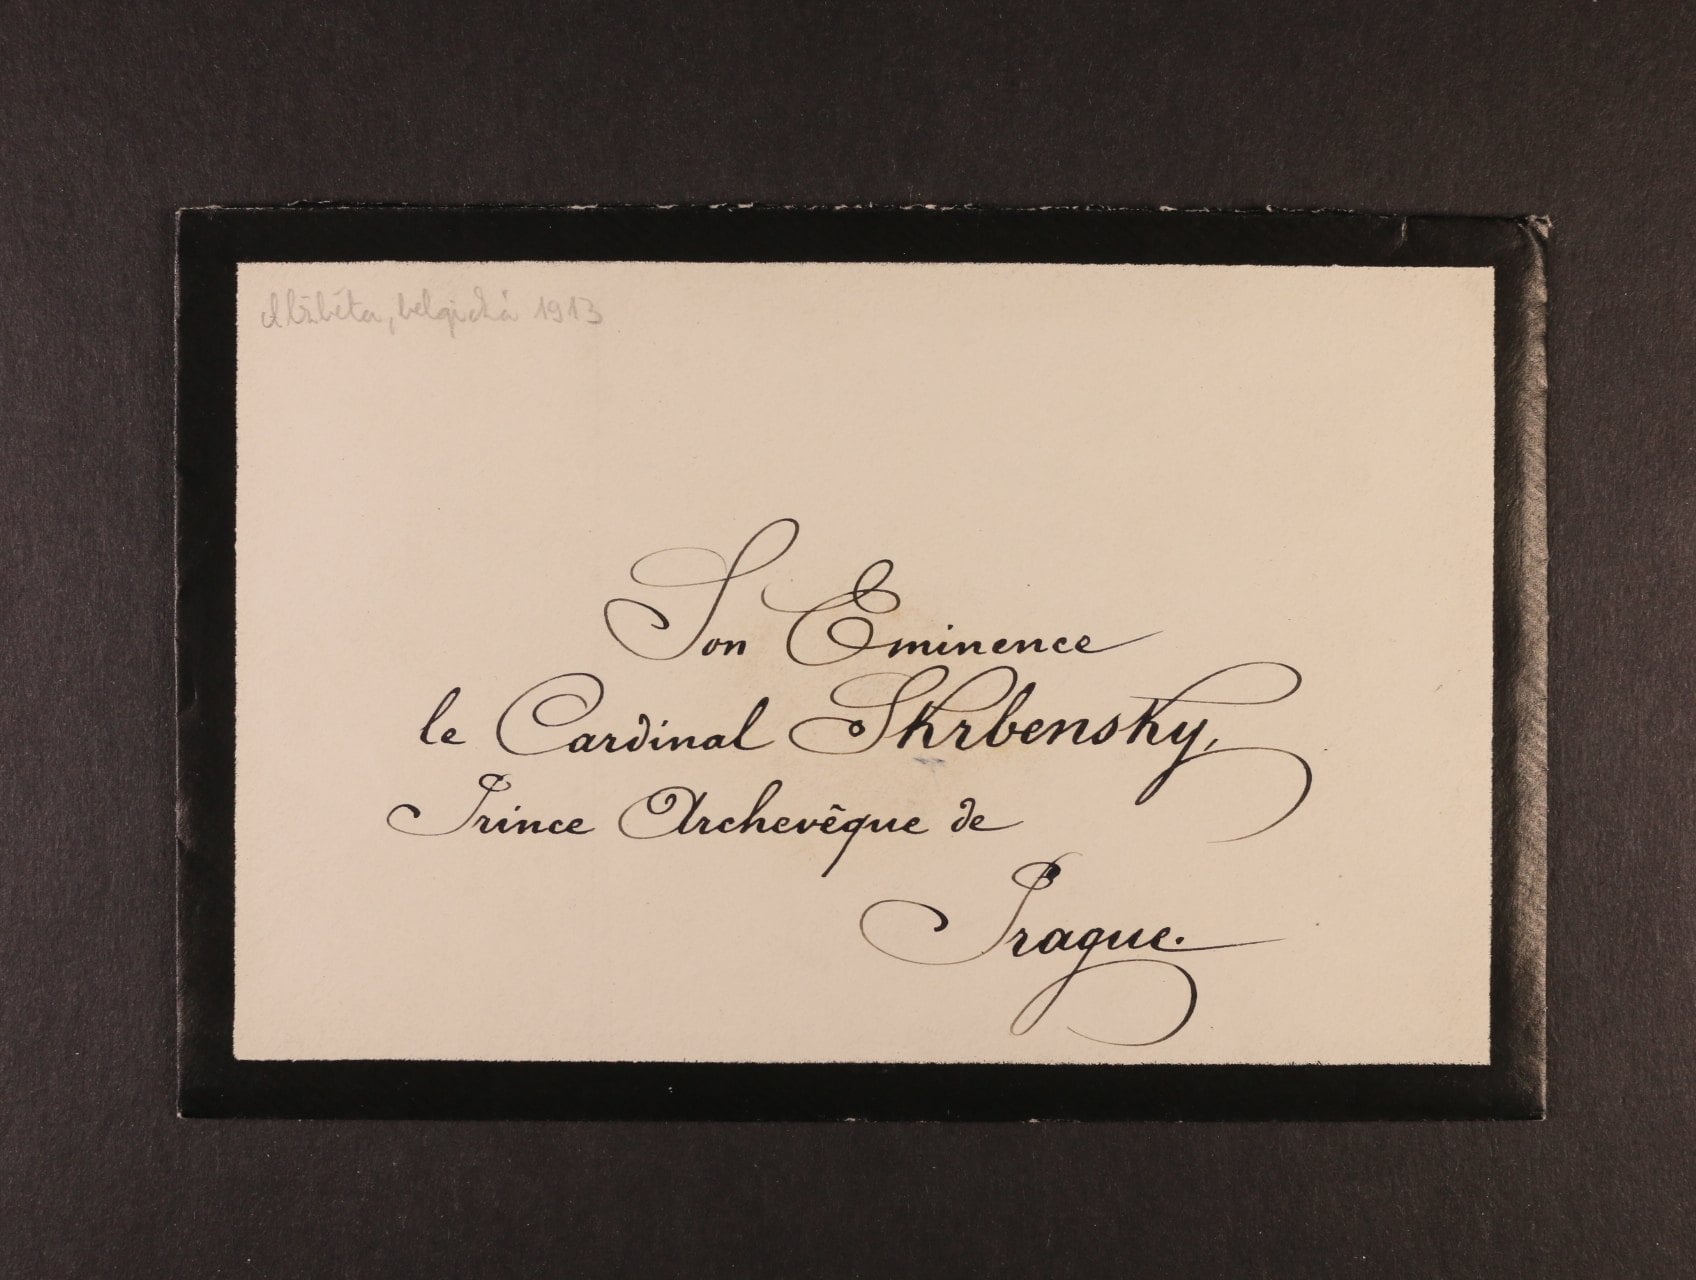 Alžběta, belgická 1913
Son Eminence
le Cardinal Skrbensky,
Prince Archevêque de
Prague.